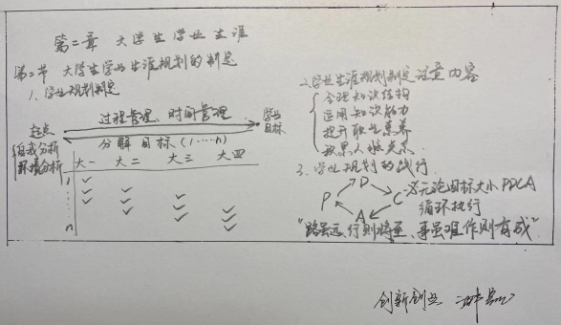 第二章 大学生学业生涯
第二节 大学生学业生涯规划的制定
1. 学业规划制定
过程管理、时间管理
起点
自我分析
环境分析
学业
目标
分解目标(1……n)
大一 大二 大三 大四
1
n
2. 学业生涯规划制定注意内容
合理知识结构
运用知识能力
提升职业素养
3. 学业规划的执行
P D C A
无论目标大小 PDCA
循环执行
"路虽远、行则将至、事虽难作则有成"
创新创业